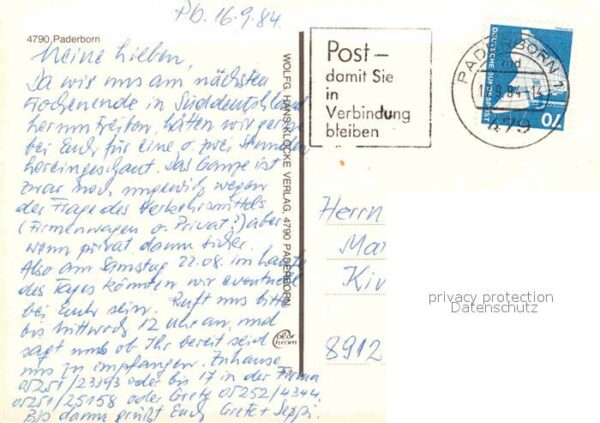 Pb. 16.9.84.
4790 Paderborn
Meine Lieben,
Da wir uns am nächsten
Wochenende in Süddeutschland
herumtreiben, hätten wir gerne
bei Euch für eine o. zwei Stunden
hereingeschaut. Das Ganze ist
zwar noch ungewiß wegen
der Frage des Verkehrsmittels
(Firmenwagen o. Privat?) aber
wenn privat dann sicher.
Also am Samstag 22.09. im Laufe
des Tages könnten wir eventuell
bei Euch sein. Ruft uns bitte
bis Mittwoch 12 Uhr an, und
sagt uns ob Ihr bereit seid
uns zu empfangen. Zuhause
05251/23393 oder bis 17 in der Firma
05251/25158 oder Grete 05252/4344.
Bis dann grüßt Euch Grete + Seppi.
WOLFG. HANS KLOCKE VERLAG, 4790 PADERBORN
Post –
damit Sie
in
Verbindung
bleiben
PADERBORN 1
479
DEUTSCHE BUNDESPOST
70
Herrn
Ma
Kiv
8912
privacy protection
Datenschutz